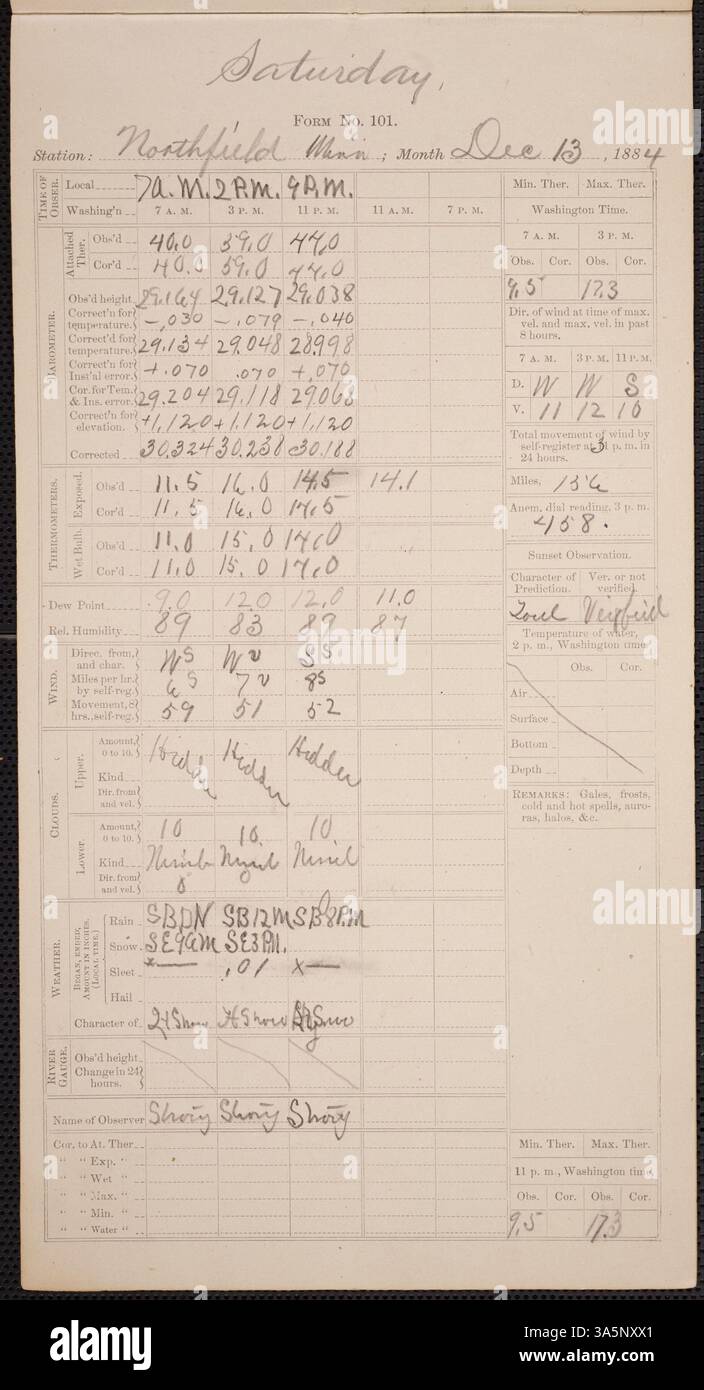 Saturday,
FORM NO. 101.
Station: Northfield Minn ; Month Dec 13 , 1884
TIME OF OBSER. Local 7 A.M. 2 P.M. 9 P.M. Min. Ther. Max. Ther.
Washing'n 7 A. M. 3 P. M. 11 P. M. 11 A. M. 7 P. M. Washington Time.
7 A. M. 3 P. M.
BAROMETER. Attached Ther. Obs'd 40.0 59.0 44.0
Cor'd 40.0 59.0 44.0 Obs. Cor. Obs. Cor.
Obs'd height 29.164 29.127 29.038 9.5 17.3
Correct'n for temperature. -.030 -.079 -.040 Dir. of wind at time of max. vel. and max. vel. in past 8 hours.
Correct'd for temperature. 29.134 29.048 28.998
Correct'n for Inst'al error. +.070 .070 +.070 7 A. M. 3 P.M. 11 P.M.
Cor. for Tem. & Ins. error. 29.204 29.118 29.068 D. W W S
Correct'n for elevation. +1.120 +1.120 +1.120 V. 11 12 10
Corrected 30.324 30.238 30.188 Total movement of wind by self-register at 3 p. m. in 24 hours.
THERMOMETERS. Exposed. Obs'd 11.5 16.0 14.5 14.1 Miles,
Cor'd 11.5 16.0 14.5 Anem. dial reading, 3 p. m.
458.
Wet Bulb. Obs'd 11.0 15.0 14.0
Cor'd 11.0 15.0 14.0 Sunset Observation.
Dew Point 9.0 12.0 12.0 11.0 Character of Prediction. Ver. or not verified.
Rel. Humidity 89 83 89 87 Foul Verified
WIND. Direc. from, and char. W S W V S S Temperature of water, 2 p. m., Washington time
Miles per hr. by self-reg. 6 S 7 V 8 S Obs. Cor.
Movement, 8 hrs., self-reg. 59 51 52 Air
Surface
CLOUDS. Upper. Amount, 0 to 10. Hidden Hidden Hidden Bottom
Kind Depth
Dir. from and vel. REMARKS: Gales, frosts, cold and hot spells, auroras, halos, &c.
Lower. Amount, 0 to 10. 10 10 10
Kind Nimb Nimb Nimb
Dir. from and vel. 0 0 0
WEATHER. BEGAN, ENDED, AMOUNT IN INCHES. (LOCAL TIME.) Rain SBDN SB12M SB8P.M
Snow SE9AM SE3P.M.
Sleet x— .01 x—
Hail
Character of Lt Snow H Snow Lt Snow
RIVER GAUGE. Obs'd height
Change in 24 hours.
Name of Observer
Cor. to At. Ther. Min. Ther. Max. Ther.
" " Exp. " 11 p. m., Washington time
" " Wet "
" " Max. " Obs. Cor. Obs. Cor.
" " Min. " 9.5 17.3
" " Water "
alamy
Image ID: 3A5NXX1
www.alamy.com